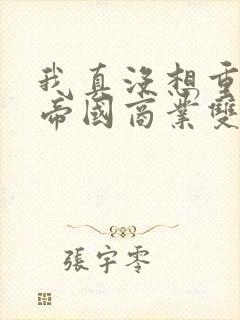 我真沒想重
帝國商業雙
張宇零